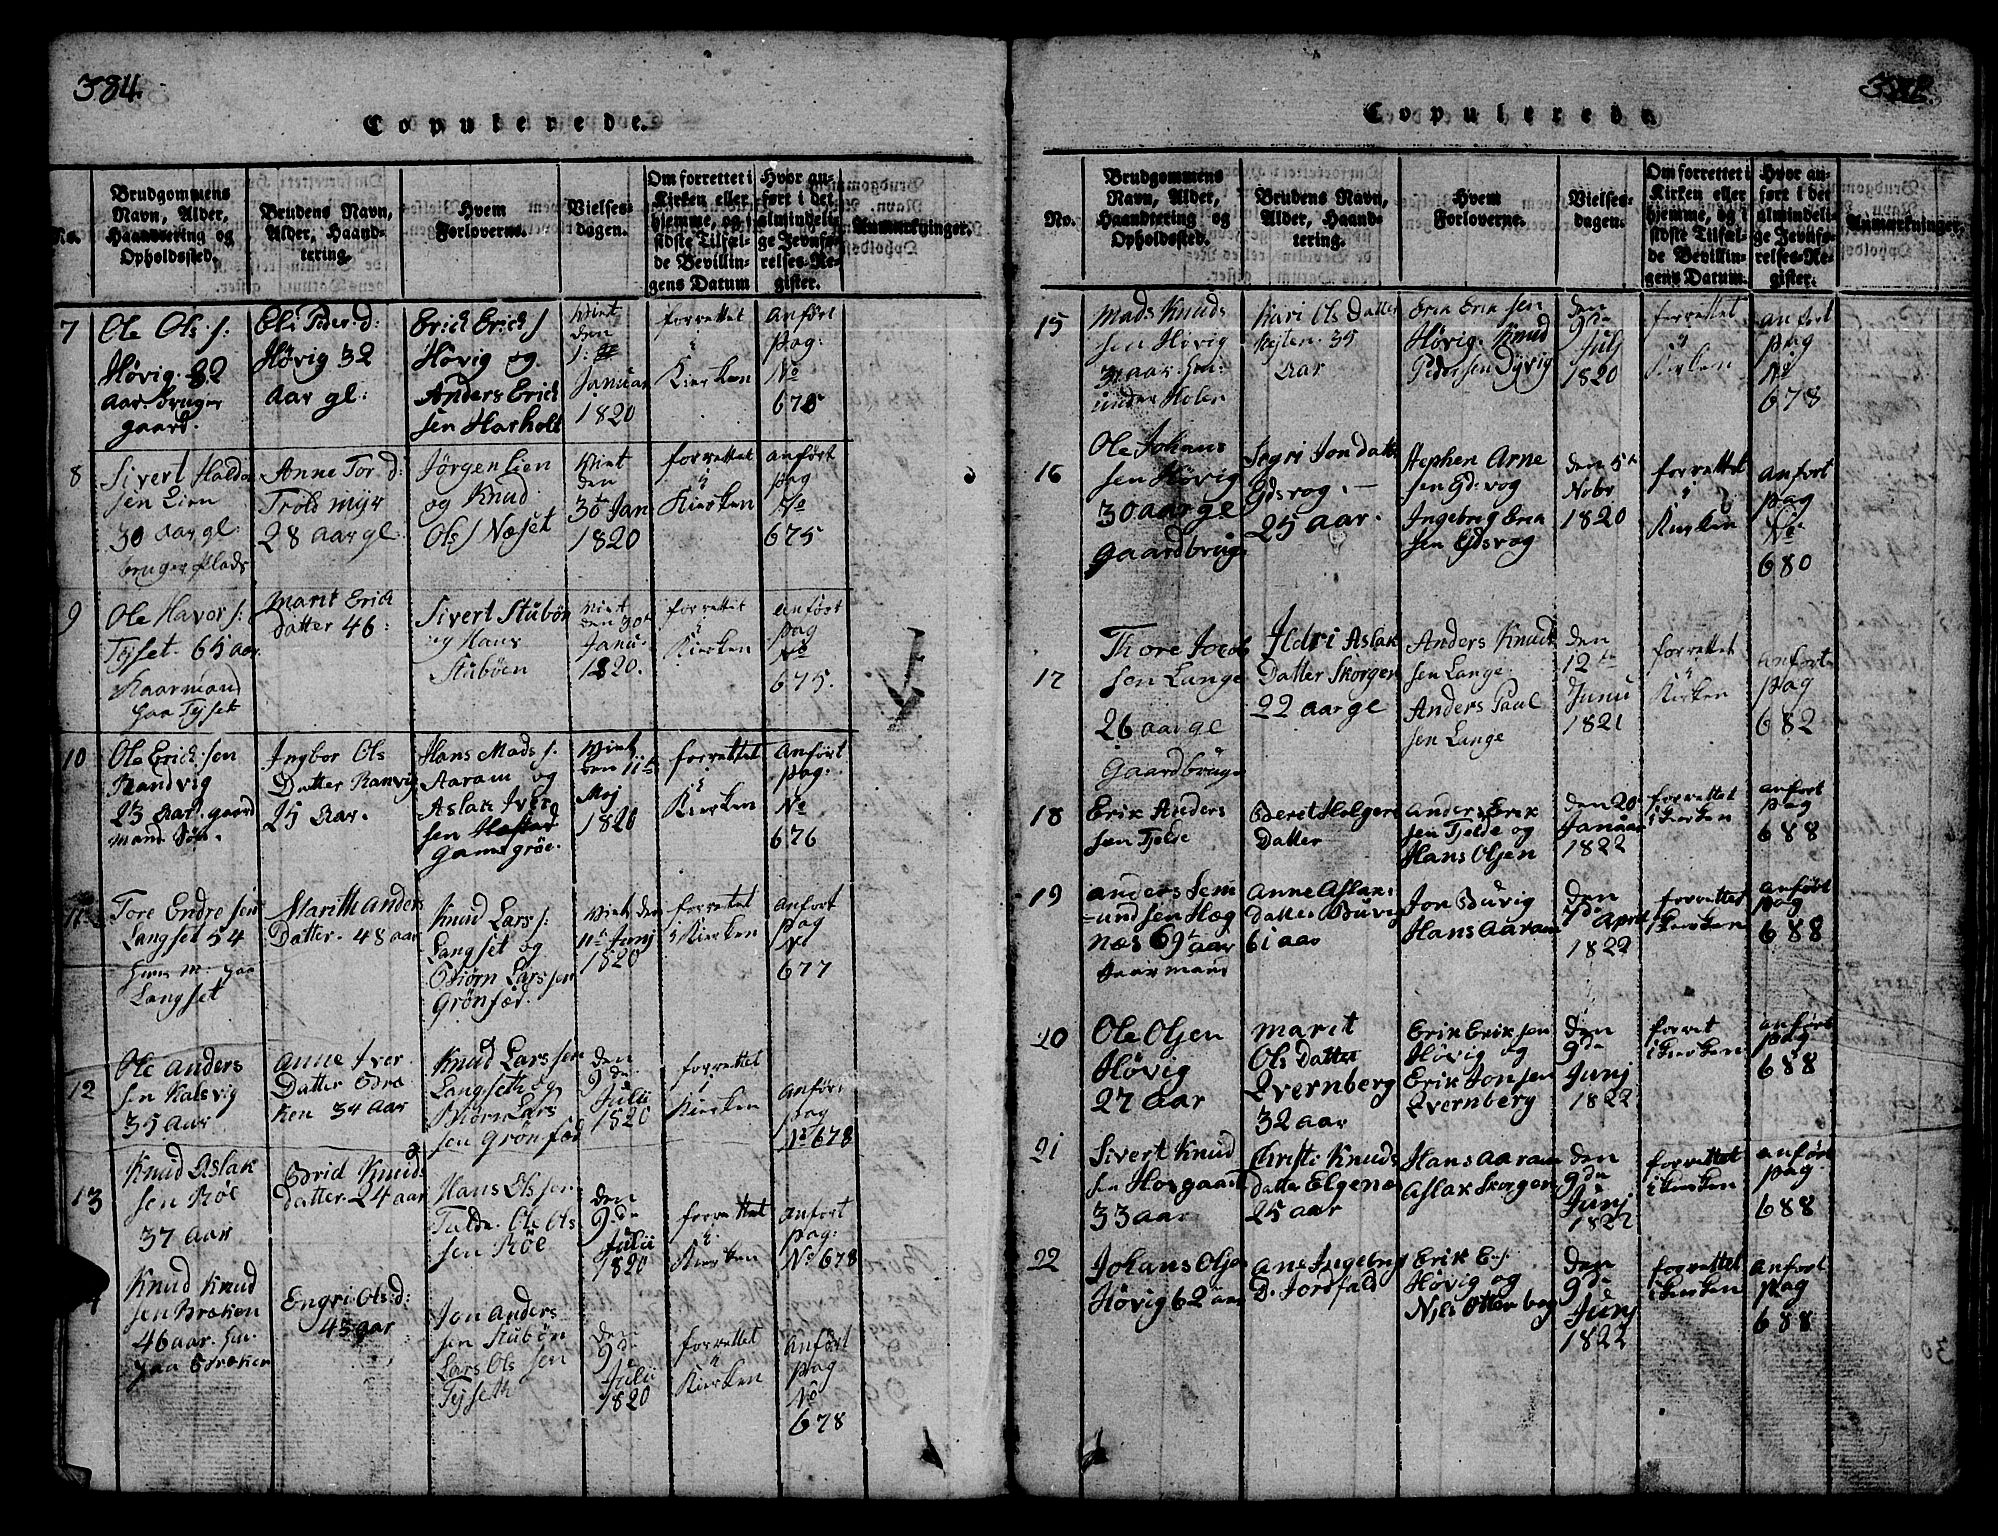 384.
Copulerede.
No.
Brudgommens
Navn, Alder,
Haandtering og
Opholdssted.
Brudens Navn,
Alder, Haand-
tering.
Hvem
Forloverne.
Vielses-
dagen.
Om forrettet i
Kirken eller
hjemme, og i
sidste Tilfæl-
de Bevillin-
gens Datum
Hvor an-
ført i det
almindeli-
ge Jevnfø-
relses-Re-
gister.
Anmærkninger.
7
Ole Ols. s:
Høvig. 32
Aar. bruger
gaard.
Eli Peder. d:
Høvig 32
Aar gl:
Erich Erich s
Høvig og
Anders Erich
sen Harholt
Viet
den
1:
Januar
1820
forrettet
i
Kierken
anført
pag:
No
675
8
Sivert Haldor
sen Lien
30 Aar gl
bruger plads
Anne Tor. d:
Trold myr
28 Aar gl.
Jörgen Lien
og Knud
Ols s Næset
Viet
den
30te Jan
1820
forrettet
i
Kiercken
anført
pag
No
675
9
Ole Havor s:
Tejset 65 aar
Kaarmand
paa Tejset
Marit Erich
datter 46:
Sivert Stübön
og Hans
Stüböen
Viet
den 30te
Janu.
1820.
forrettet
i
Kiercken
anført
pag
No
675.
10
Ole Erich. sen
Randvig
23 Aar. gaard
mand Søn.
Ingbor Ols
Datter Ranvig
25 Aar.
Hans Mads s.
Aaram og
Aslak Iver
sen
Gamsgröe.
Viet
den 11te
Maj
1820
forrettet
i
Kiercken
anført
pag:
No
676
11
Tore Endre sen
Langset 54
Huus m. paa
Langset
Marith Anders
Datter. 48 aar
Knud Lars s:
Langset og
Biörn Lars sen
Grönfæd.
Viet den
11te Junj
1820
forrettet
i Kiercken
anfort
pag
No
677
12
Ole Anders
sen Kalsvig
35 Aar
Anne Iver
Datter Bræ
ken 34 Aar
Knud Lars sen
Langseth og
Biörn Lars
sen Grönfæd
den
9.de
Julii
1820
forrettet
i
Kiercken
anført
pag
No 678
13
Knud Aslak
sen Röe
37 Aar
Brid Knuds
Datter. 24 aar
Hans Ols sen
Talde. Ole Ols
sen Röe
den
9.de
Julii
1820
forrettet
i
Kiercken
anfört
pag:
No 678
Knud Knud
sen Bræken
46 aar. Hu.
paa Bræken
Engri Ols d:
45 aar
Jon Anders
sen Stübön
Lars Ols sen
Tejseth
den
9.de
Julii
1820
forrettet
i
Kiercken
anført
pag
No
678
Copulerede.
No.
Brudgommens
Navn, Alder,
Haandtering og
Opholdssted.
Brudens Navn,
Alder, Haand-
tering.
Hvem
Forloverne.
Vielses-
dagen.
Om forrettet i
Kirken eller
hjemme, og i
sidste Tilfæl-
de Bevillin-
gens Datum.
Hvor an-
ført i det
almindeli-
ge Jevnfø-
relses-Re-
gister.
Anmærkninger.
15
Mads Knuds
sen Høvig
31 aar.
under Holen
Kari Ols Datter
35
Aar
Erik Erik sen
Høvig. Knud
Peder sen Dyrvig
den
9de
Julj
1820
forrettet
i
Kirken
anfort
pag
No
678
16
Ole Johans
sen Høvig
30 aar gl
Gaardbrug
Segri Jon datt
Eidsvog. —
25 aar.
Stephen Arne
sen Eidsvog
Ingebrig Erik
sen Eidsvog
den 5te
Nobr
1820
forrettet
i
Kirken
anfort
pag
No
680
17
Thore Jocob
sen Lange
26 aar gl
Gaardbruger
Ildri Aslak
Datter Skorgen
22 aar gl
Anders Knud
sen Lange
Anders Paul
sen Lange
den
12te
Junii
1821
forrettet
i
Kirken
anfort
pag
682
18
Erik Anders
sen Tjelde
Beret Holger
Datter
Anders Erik
sen Tjelde og
Hans Olsen
den 20
Januar
1822
forrettet
i Kerken
anfort
pag
688
19
Anders Sem
undsen Hæg
næs 69 aar
kaarmand
Anne Aslak
Datter Buvig
61 aar
Jon Buvig
Hans Aaram
den
7de April
1822
forrettet
i Kerken
anført
pag
688
20
Ole Olsen
Høvig
27 aar
Marit
Ols Datter
Qvernberg
32 aar
Erik Erik sen
Høvig og
Erik Jonsen
Qvernberg
den
9de
Junj
1822
forret
i Kerken
anført
pag
688
21
Sivert Knud
sen Horgaart
33 aar
Christi Knuds
datter Elgenæ
25 aar
Hans Aaram
Aslak Skorgen
den
9de
Junj
1822
forrettet
i Kerken
anført
pag
688
22
Johans Olsen
Høvig 62 aar
Ane Ingebrig
D. Jordfald
Erik E. s.
Høvig og
Niels Otterbeg
den
9de
Junj
1822
forrettet
i Kerken
anfort
pag
688